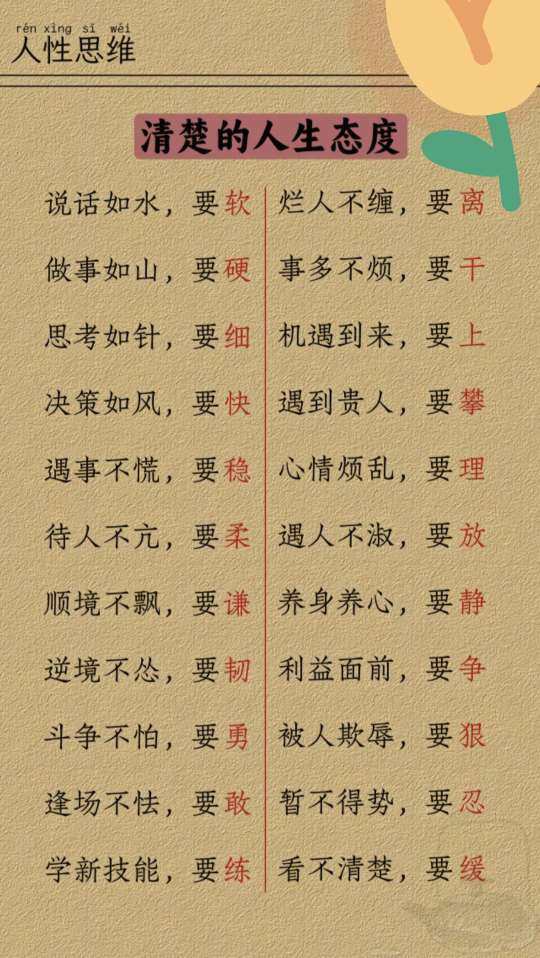 rén xìng sī wéi
人性思维
清楚的人生态度
说话如水，要软
做事如山，要硬
思考如针，要细
决策如风，要快
遇事不慌，要稳
待人不亢，要柔
顺境不飘，要谦
逆境不怂，要韧
斗争不怕，要勇
逢场不怯，要敢
学新技能，要练
烂人不缠，要离
事多不烦，要干
机遇到来，要上
遇到贵人，要攀
心情烦乱，要理
遇人不淑，要放
养身养心，要静
利益面前，要争
被人欺辱，要狠
暂不得势，要忍
看不清楚，要缓